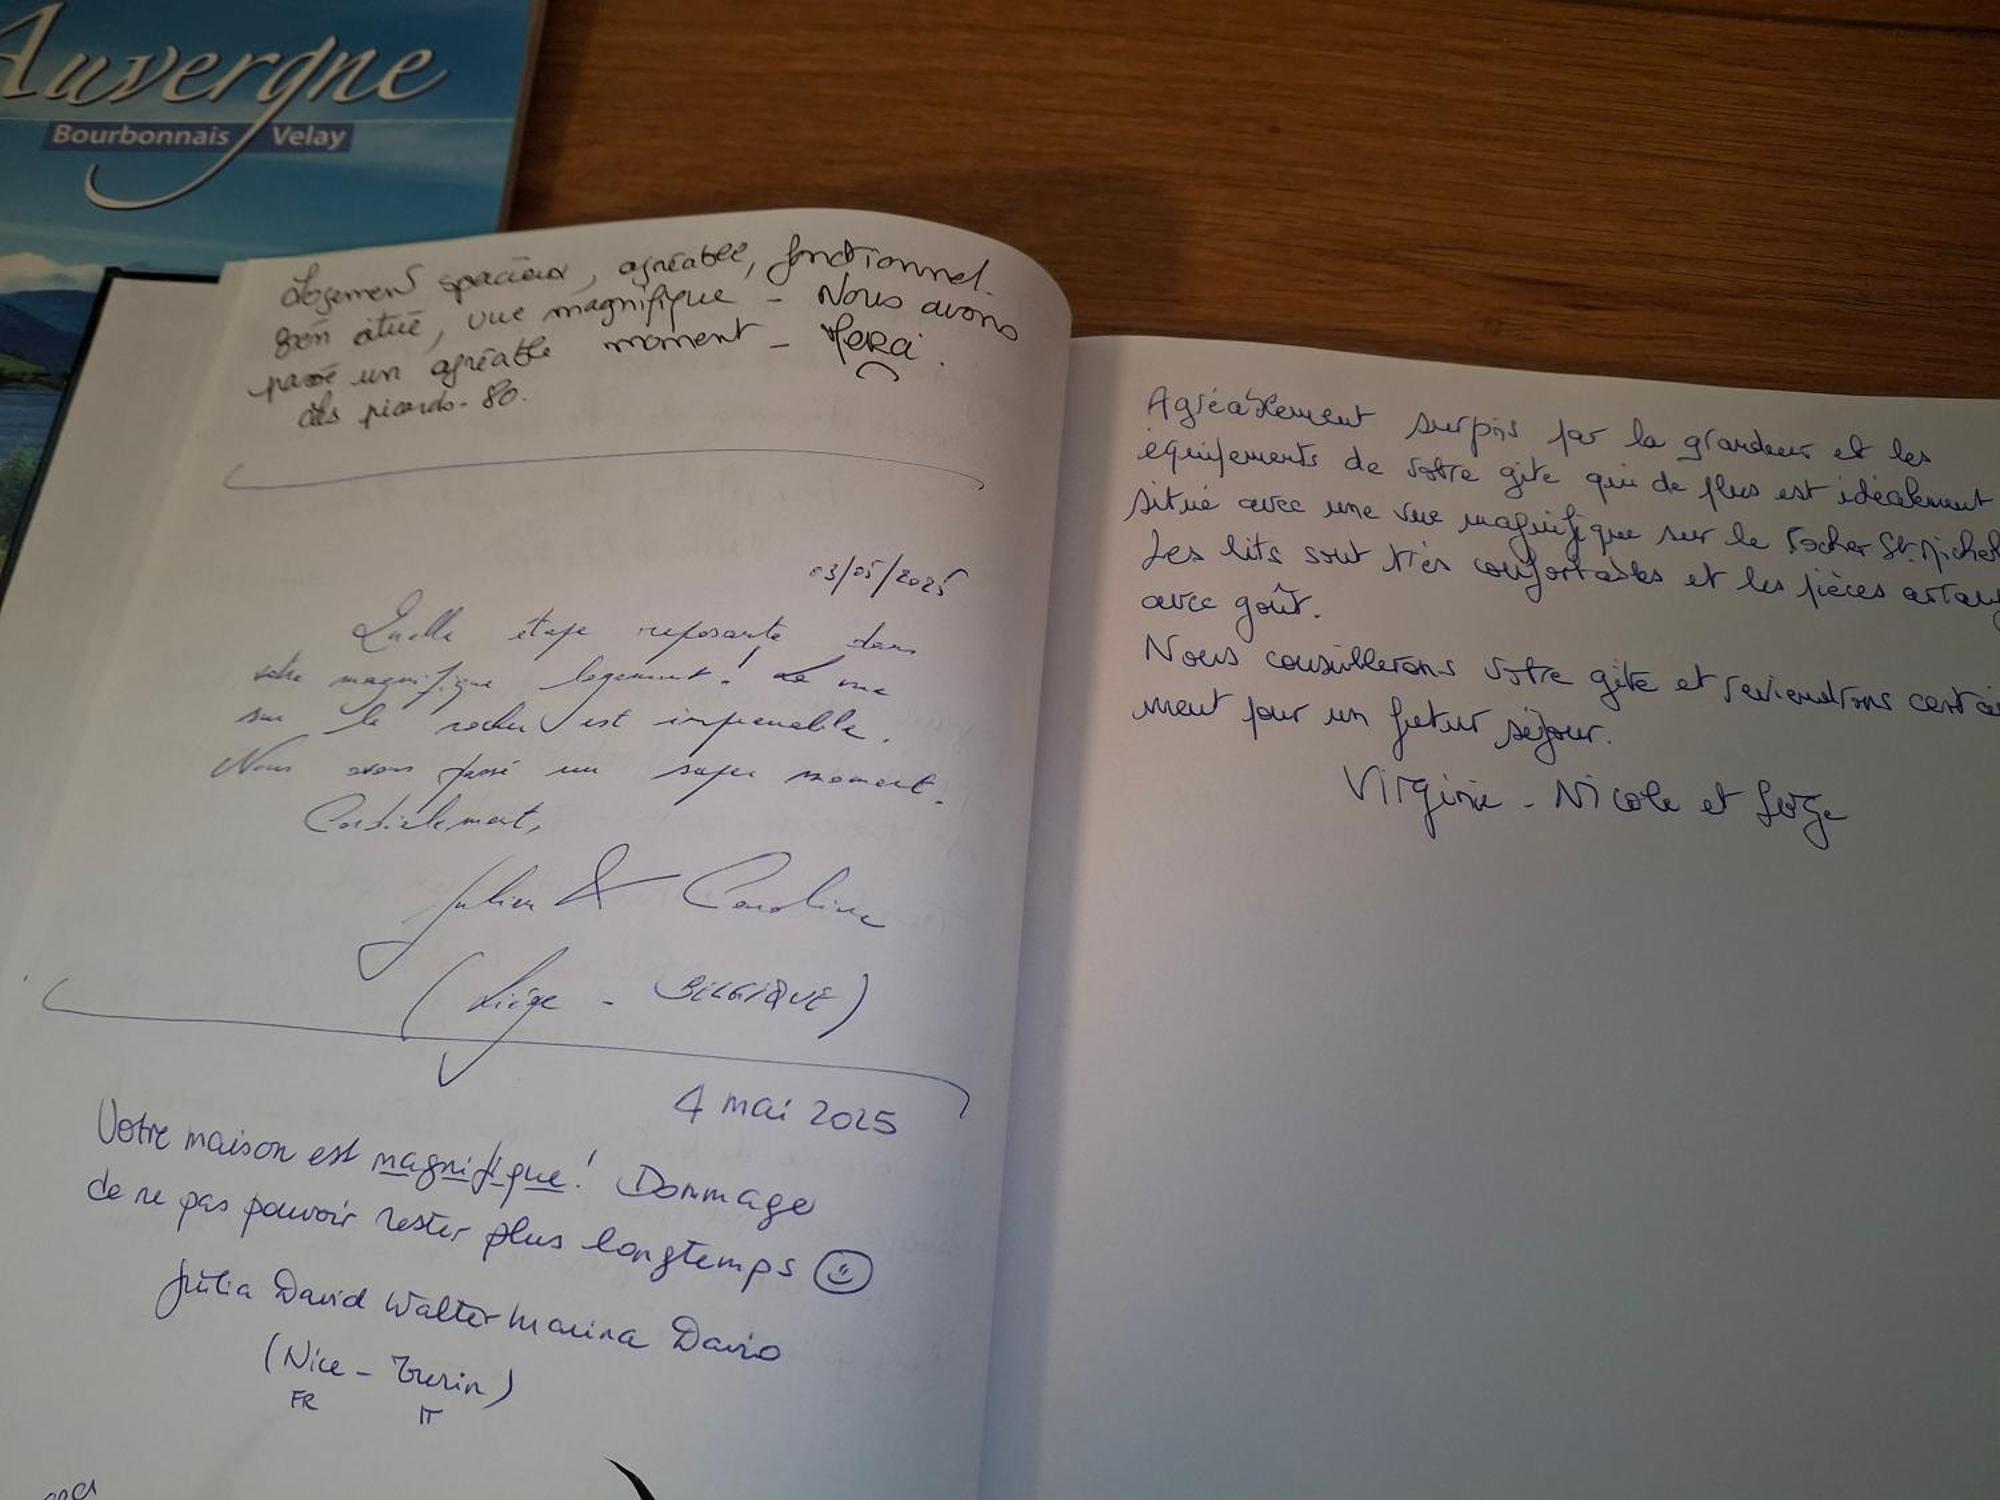 Auvergne
Bourbonnais Velay
Logement spacieux, agréable, fonctionnel.
Bien situé, vue magnifique - Nous avons
passé un agréable moment - Merci.
Les picards - 80.
03/05/2025
Quelle étape reposante dans
votre magnifique logement! La vue
sur le rocher est imprenable.
Nous avons passé un super moment.
Cordialement,
Julien & Caroline
(Liège - BELGIQUE)
4 mai 2025
Votre maison est magnifique! Dommage
de ne pas pouvoir rester plus longtemps
Julia David Walter Marina
(Nice - Turin)
FR IT
Agréablement surpris par la grandeur et les
équipements de votre gîte qui de plus est idéalement
situé avec une vue magnifique sur le rocher St Michel
Les lits sont très confortables et les pièces
avec goût.
Nous conseillerons votre gîte et reviendrons
ment pour un futur séjour.
Virginie - Nicole et Serge